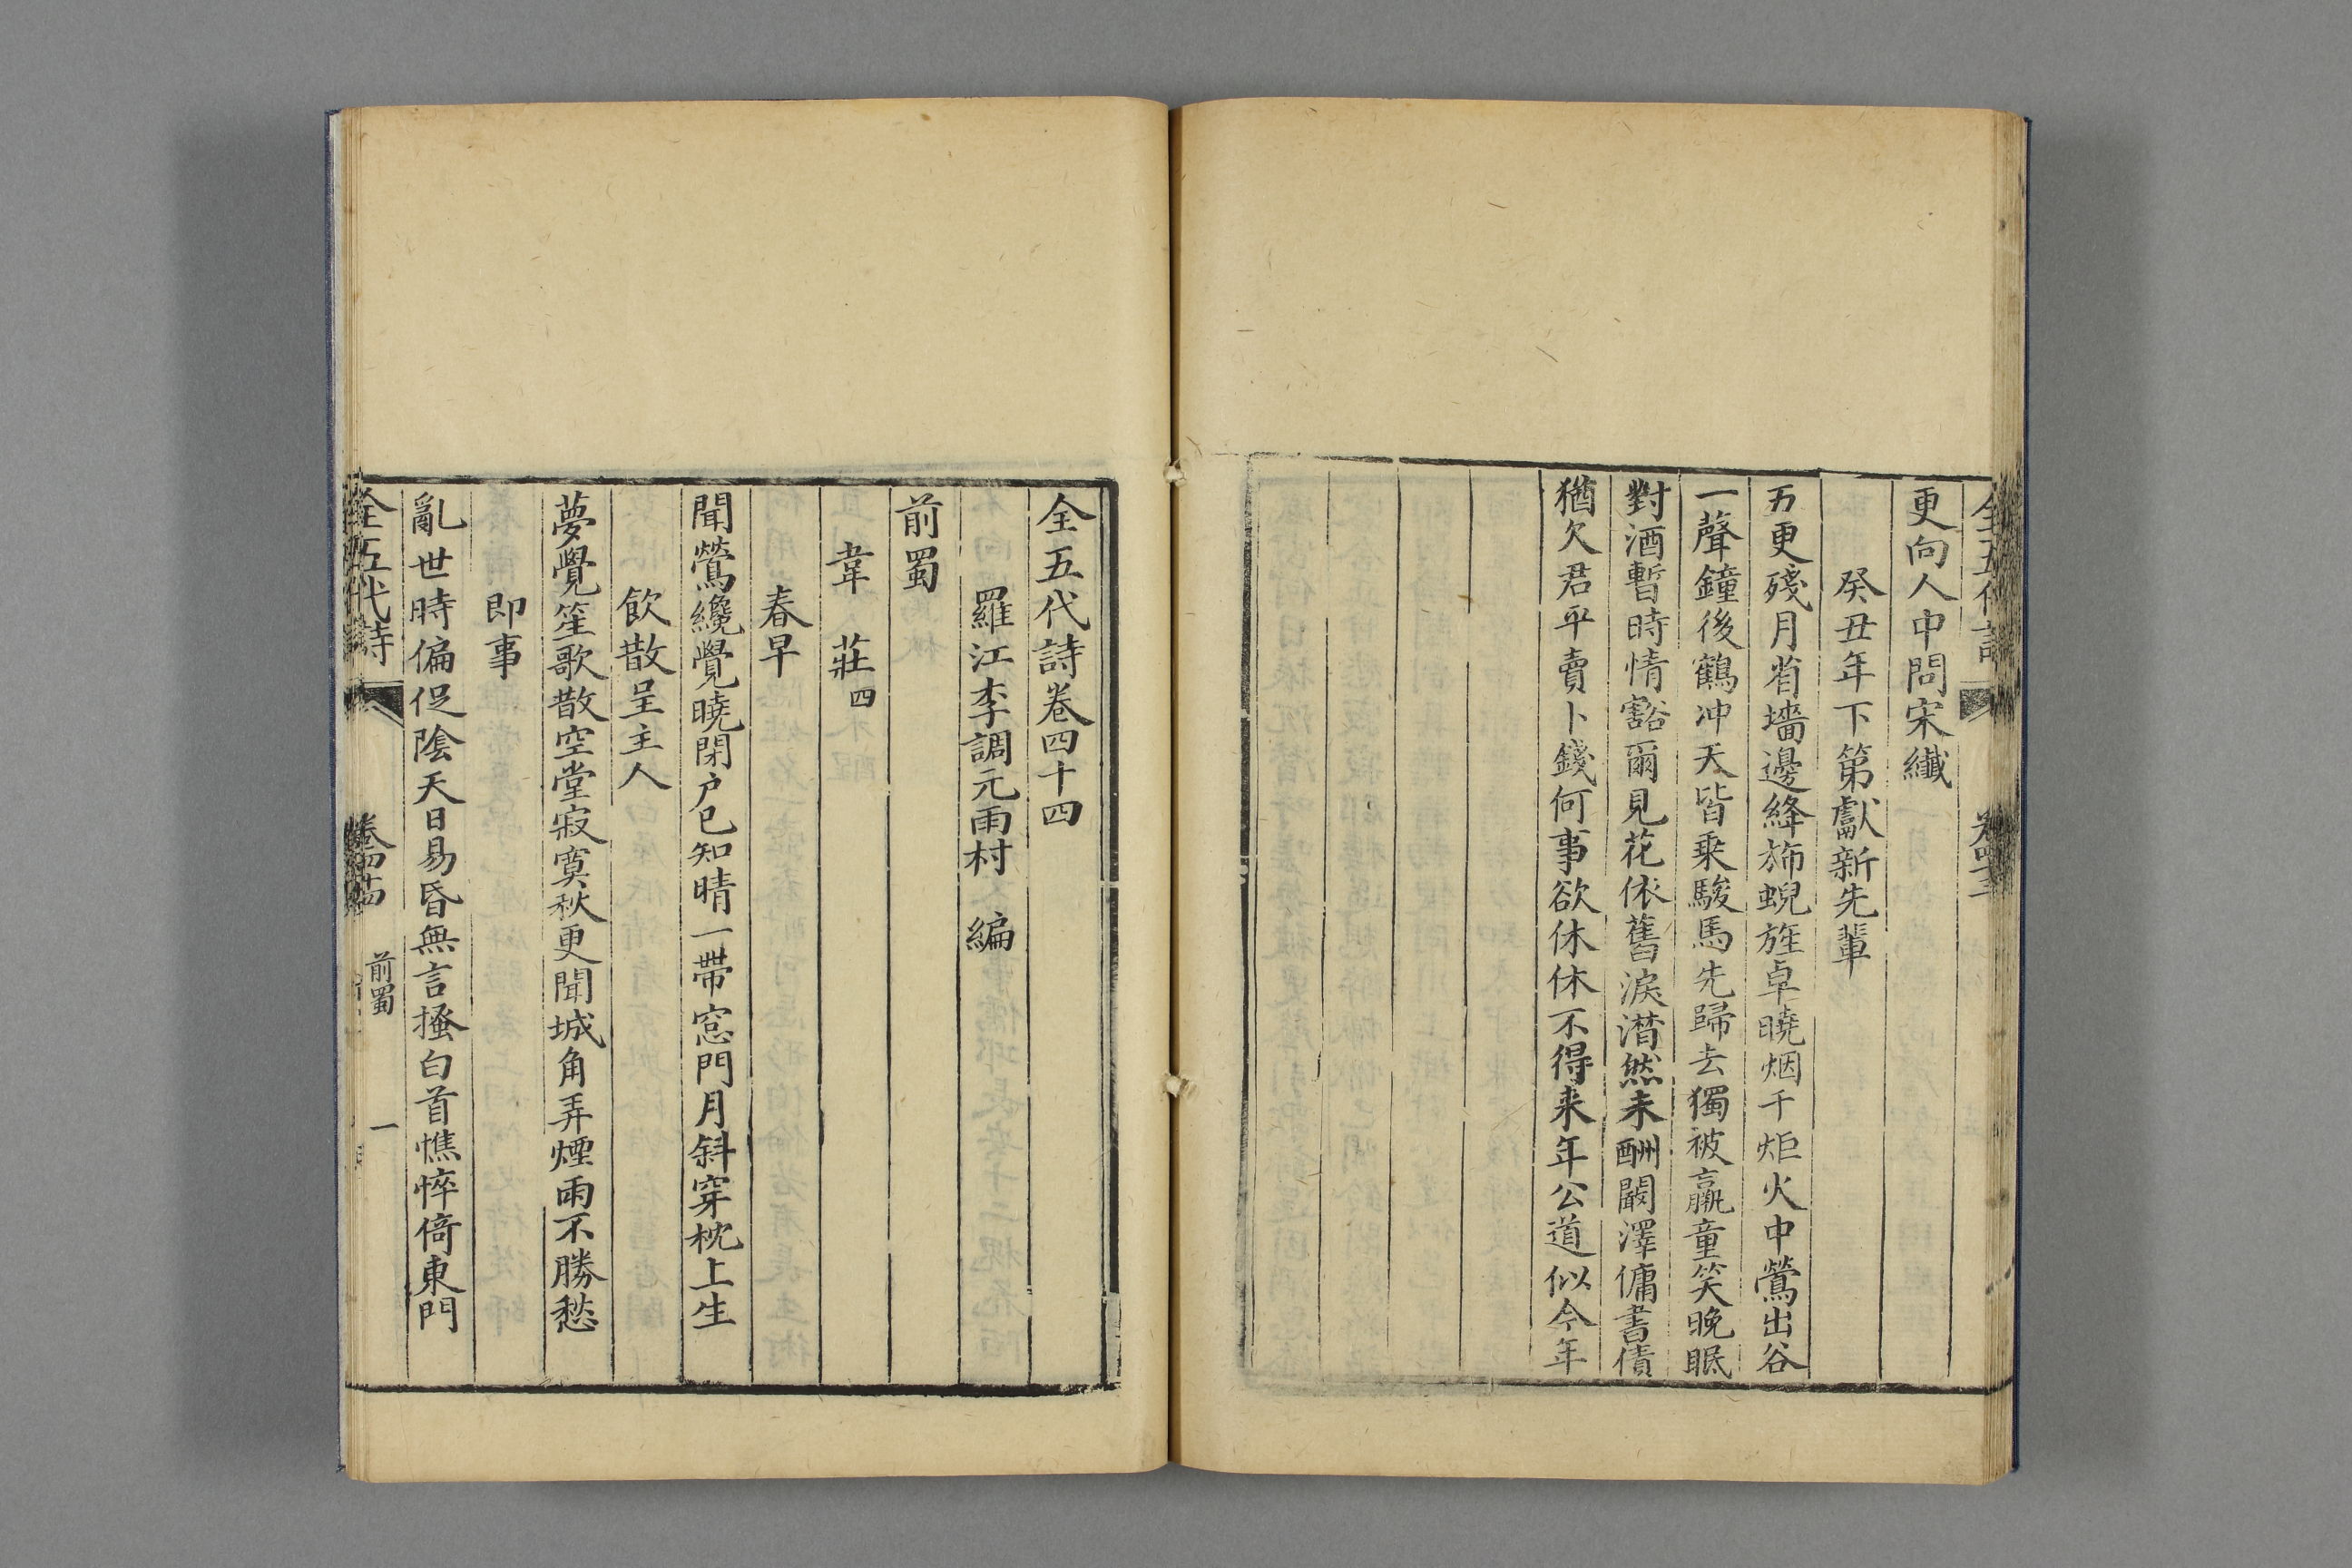 全五代詩 卷四十三
更向人中問宋纖
癸丑年下第獻新先輩
五更殘月省墻邊絳斾蜺旌卓曉烟千炬火中鶯出谷
一聲鐘後鶴冲天皆乘駿馬先歸去獨被羸童笑晚眠
對酒暫時情豁爾見花依舊淚潸然未酬闞澤傭書債
猶欠君平賣卜錢何事欲休休不得来年公道似今年
全五代詩卷四十四
羅江李調元雨村 編
前蜀
韋 莊四
春早
聞鶯纔覺曉閉户已知晴一帶窓門月斜穿枕上生
飲散呈主人
夢覺笙歌散空堂寂寞秋更聞城角弄煙雨不勝愁
即事
亂世時偏促陰天日易昏無言搔白首憔悴倚東門
全五代詩 卷四十四 前蜀 一